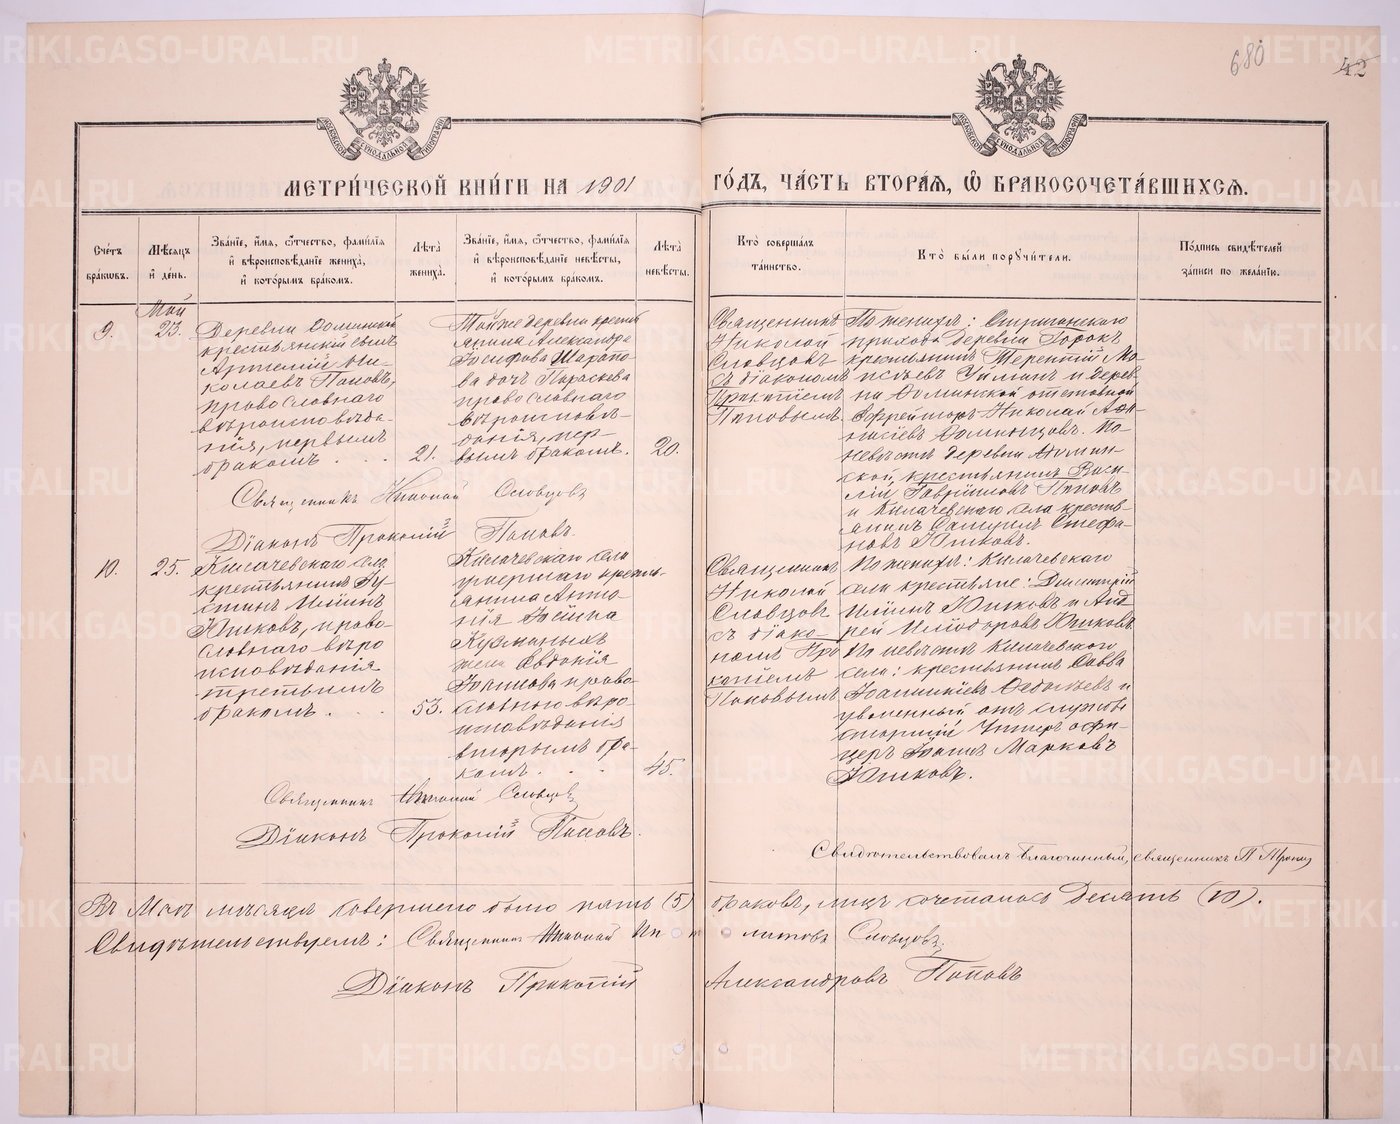 680
42
МОСКОВСКОЙ СѴНОДАЛЬНОЙ ТИПОГРАФІИ
МОСКОВСКОЙ СѴНОДАЛЬНОЙ ТИПОГРАФІИ
МЕТРИ́ЧЕСКОЙ КНИ́ГИ НА 1901 ГО́ДЪ, ЧА́СТЬ ВТОРА́Я, Ѽ БРАКОСОЧЕТА́ВШИХСЯ.
Сче́тъ бра́кѡвъ.
Мѣ́сѧцъ и҆ де́нь.
Зва́нїе, и҆́мѧ, ѻ҆́тчество, фамі́лїѧ и҆ вѣроисповѣ́данїе жениха̀, и҆ кото́рымъ бра́комъ.
Лѣ́та жениха̀.
Зва́нїе, и҆́мѧ, ѻ҆́тчество, фамі́лїѧ и҆ вѣроисповѣ́данїе невѣ́сты, и҆ кото́рымъ бра́комъ.
Лѣ́та невѣ́сты.
Кто̀ соверша́лъ та́инство.
Кто̀ бы́ли порꙋчи́тели.
По́дпись свидѣ́телей за́писи по жела́нїю.
Май
9.
23.
Деревни Фоминской
крестьянскій сынъ
Артемій Ни-
колаевъ Поповъ,
православнаго
вѣроисповѣда-
нія, первымъ
бракомъ . . .
21.
Той же деревни крестьянина Александра
Іосифова Шарапо-
ва дочь Параскева
православнаго
вѣроисповѣ-
данія, пер-
вымъ бракомъ.
20.
Священникъ
Николай
Словцовъ
съ діакономъ
Прокопіемъ
Поповымъ.
По женихѣ: Стриганскаго
прихода деревни Горокъ
крестьянинъ Терентій Мо-
исѣевъ и дерев-
ни Фоминской отставной
Ефрейторъ Николай Афо-
насіевъ Фоминцовъ. По
невѣстѣ деревни Фомин-
ской крестьянинъ Васи-
лій Гавріиловъ Поповъ
и Килачевскаго села кресть-
янинъ Самуилъ Стефа-
новъ Юшковъ.
Священникъ Николай Словцовъ
Діаконъ Прокопій Поповъ.
10.
25.
Килачевскаго села
крестьянинъ Іу-
стинъ Ильинъ
Юшковъ, право-
славнаго вѣро
исповѣданія
третьимъ
бракомъ. . . .
53.
Килачевскаго села
умершаго кресть-
янина Анто-
нія
Кузминыхъ
жена Евдокія
Іоаннова право-
славнаго вѣро-
исповѣданія
вторымъ бра-
комъ. . .
45.
Священникъ
Николай
Словцовъ
съ діако-
номъ Про
копіемъ
Поповымъ
По женихѣ: Килачевскаго
села крестьяне: Димитрій
Ильинъ Юшковъ и Анд
рей Иліодоровъ Юшковъ
По невѣстѣ Килачевскаго
села: крестьянинъ Савва
Іоанникіевъ и
уволенный отъ службы
старшій Унтеръ офи-
церъ Іоаннъ Марковъ
Юшковъ.
Священникъ Николай Словцовъ
Діаконъ Прокопій Поповъ.
Свидѣтельствовалъ благочинный, священникъ П.
Въ Маѣ мѣсяцѣ совершено было пять (5) браковъ, лицъ сочеталось десять (10).
Свидѣтельствуемъ: Священникъ Николай Ипполитовъ Словцовъ
Діаконъ Прокопій Александровъ Поповъ
METRIKI.GASO-URAL.RU